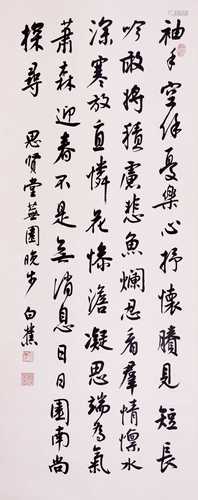 袖手空餘憂樂心抒懷賸見短長
吟敢將積慮悲魚爛忍看羣情懍水
深寒放直憐花慘澹凝思端為氣
蕭森迎春不是無消息日日園南尚
探尋
思賢堂蕪園晚步 白蕉